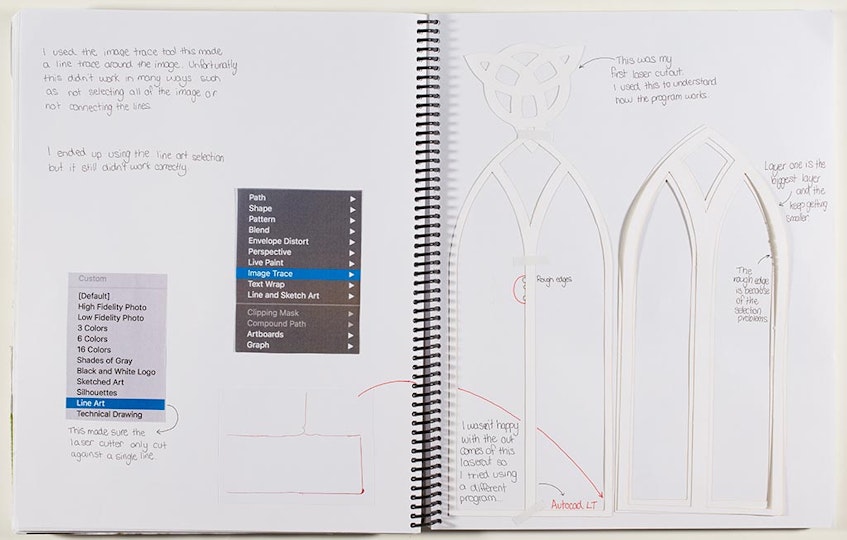 I used the image trace tool this made
a line trace around the image. Unfortunatly
this didn't work in many ways such
as not selecting all of the image or
not connecting the lines.
I ended up using the line art selection
but it still didn't work correctly.
Path
Shape
Pattern
Blend
Envelope Distort
Perspective
Live Paint
Image Trace
Text Wrap
Line and Sketch Art
Clipping Mask
Compound Path
Artboards
Graph
Custom
[Default]
High Fidelity Photo
Low Fidelity Photo
3 Colors
6 Colors
16 Colors
Shades of Gray
Black and White Logo
Sketched Art
Silhouettes
Line Art
Technical Drawing
This made sure the
laser cutter only cut
against a single line.
This was my
first laser cutout.
I used this to understand
how the program works.
Layer one is the
biggest layer
and the
keep getting
smaller
Rough edges
The
rough edge
is because
of the
selection
problems.
I wasn't happy
with the out
comes of this
lasercut so
I tried using
a different
program...
Autocad LT